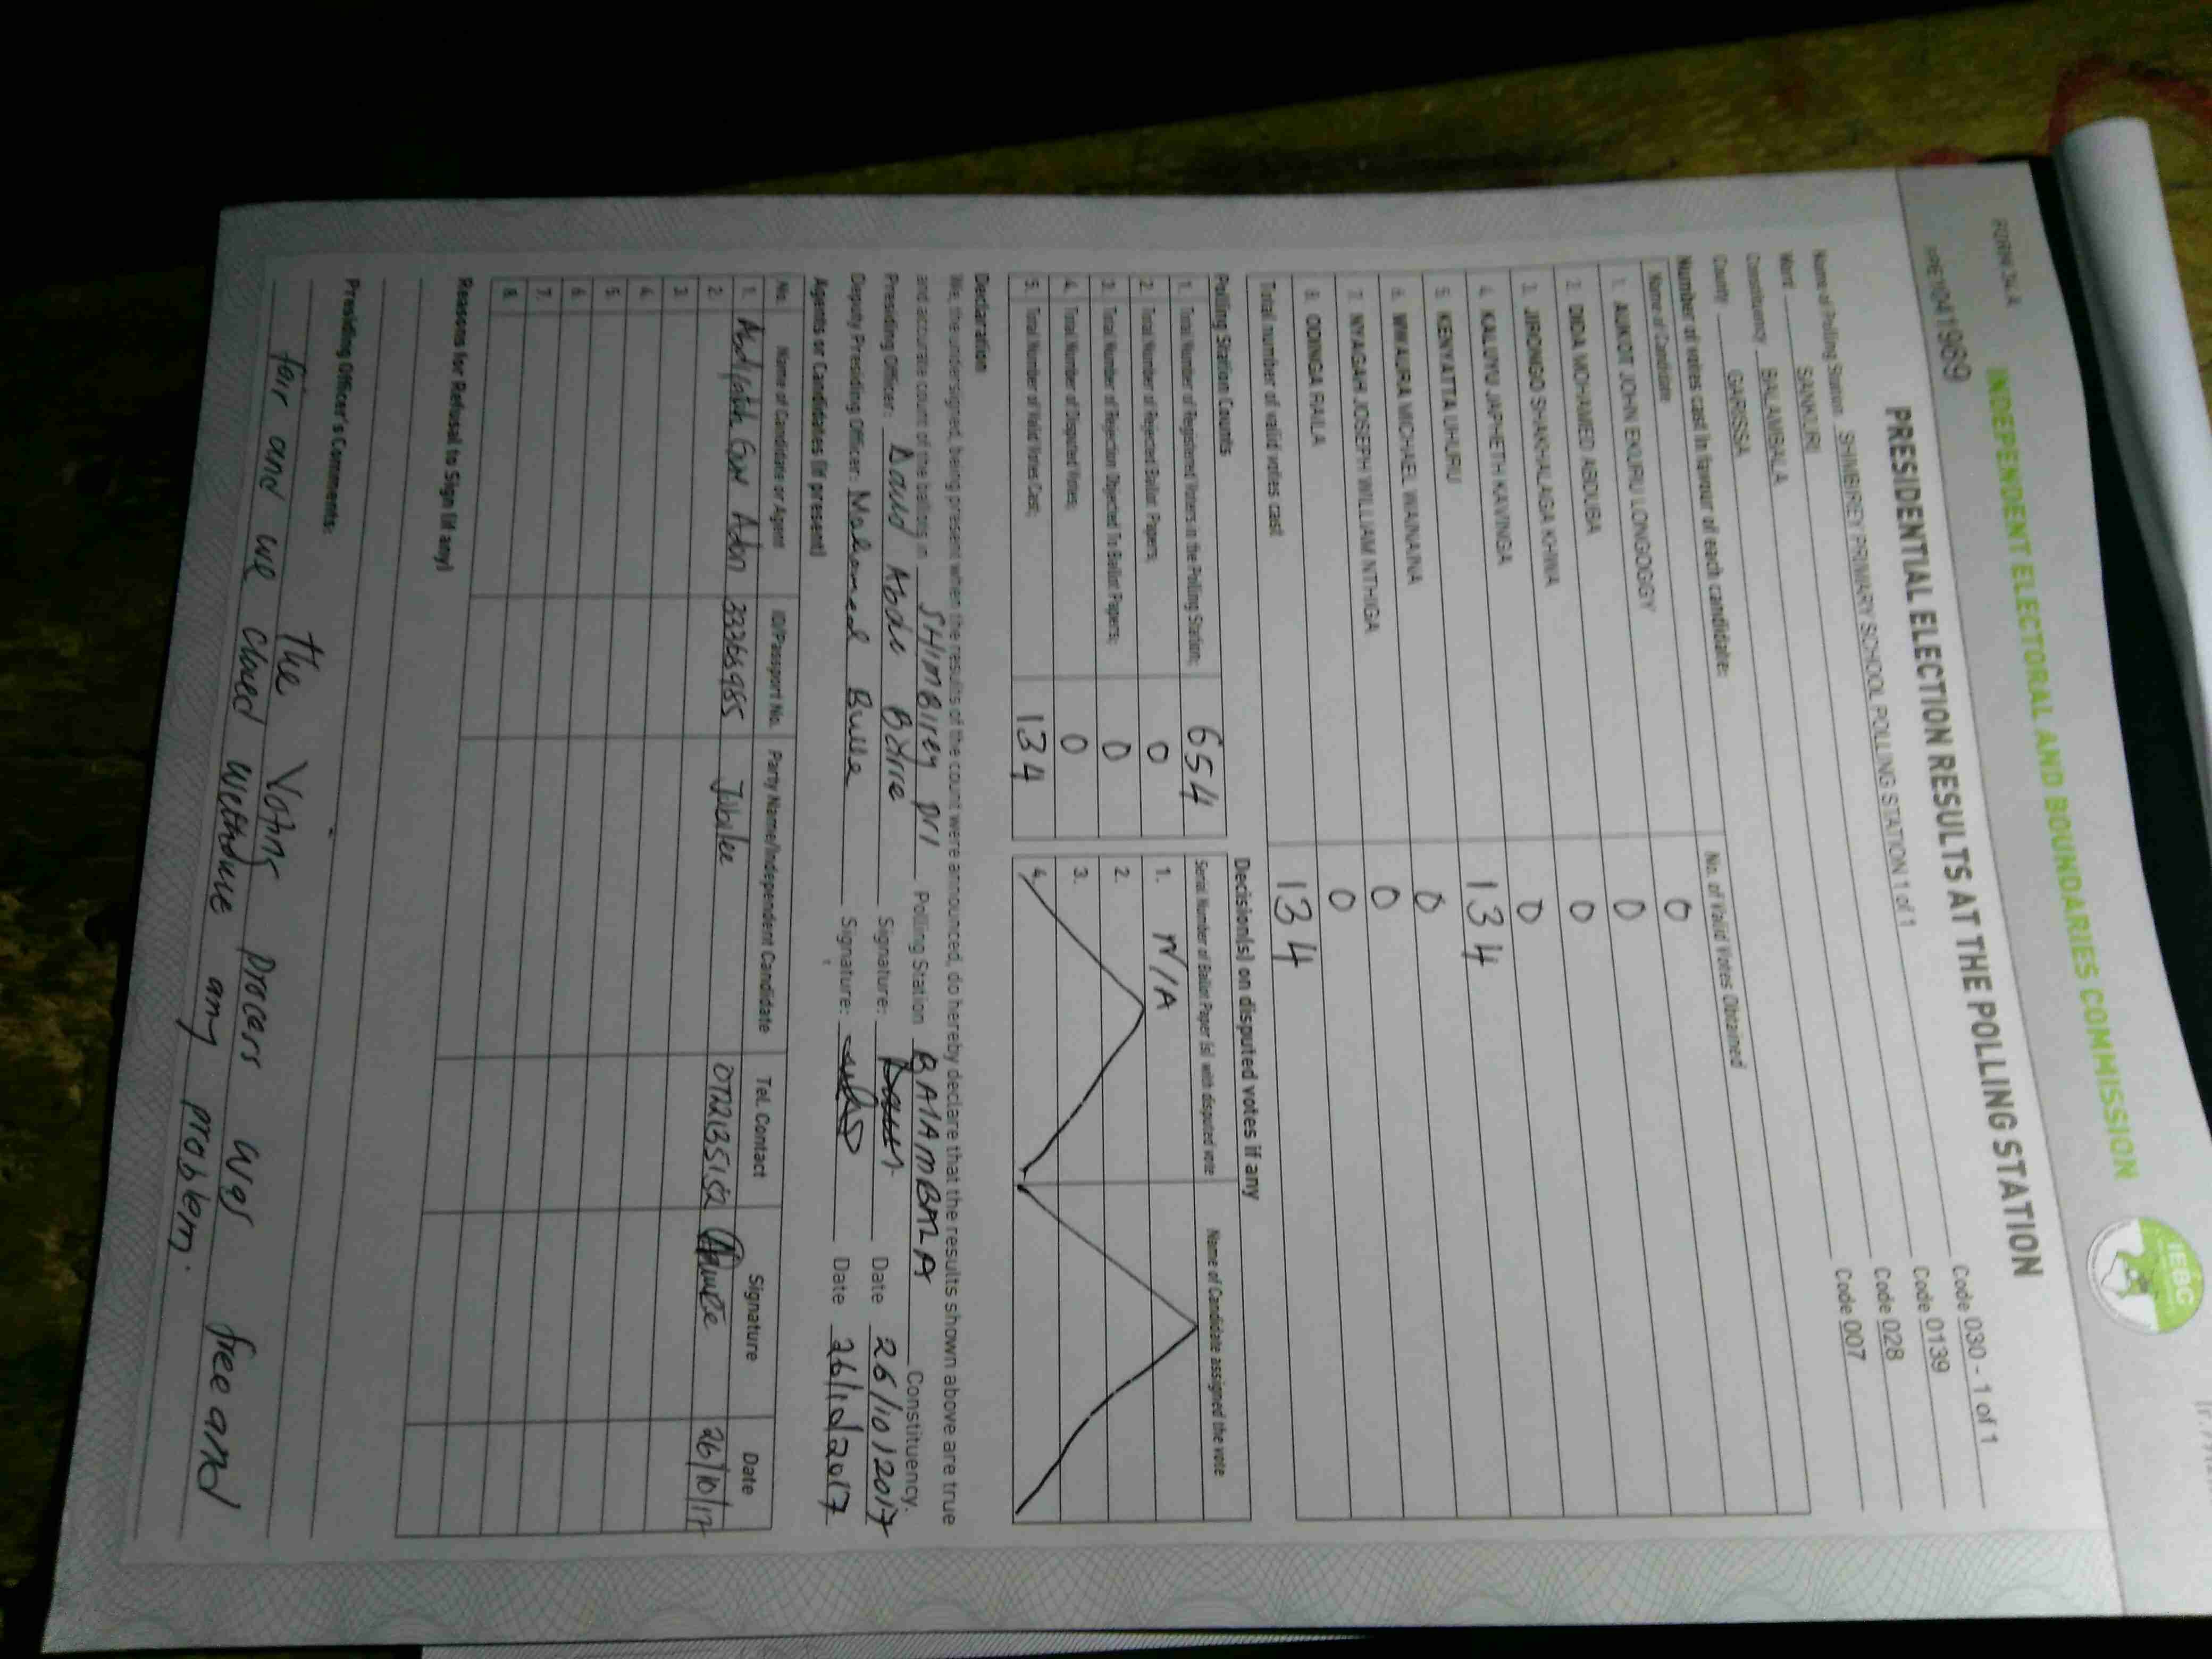 FORM 34 A
INDEPENDENT ELECTORAL AND BOUNDARIES COMMISSION
IEBC
PRESIDENTIAL ELECTION RESULTS AT THE POLLING STATION
Name of Polling Station SHIMBIREY PRIMARY SCHOOL POLLING STATION 1 of 1 Code 030 - 1 of 1
Ward SANKURI Code 0139
Constituency BALAMBALA Code 028
County GARISSA Code 007
Number of votes cast in favour of each candidate:
Name of Candidate No. of Valid Votes Obtained
1. AUKOT JOHN EKURU LONGOGGY 0
2. DIDA MOHAMED ABDUBA 0
3. JIRONGO SHAKHALAGA KHWA 0
4. KALUYU JAPHETH KAVINGA 0
5. KENYATTA UHURU 134
6. MWAURA MICHAEL WAINAINA 0
7. NYAGAH JOSEPH WILLIAM NTHIGA 0
8. ODINGA RAILA 0
Total number of valid votes cast 134
Polling Station Counts
1. Total Number of Registered Voters in the Polling Station; 654
2. Total Number of Rejected Ballot Papers; 0
3. Total Number of Rejection Objected To Ballot Papers; 0
4. Total Number of Disputed Votes; 0
5. Total Number of Valid Votes Cast; 134
Decision(s) on disputed votes if any
Serial Number of Ballot Paper (s) with disputed vote Name of Candidate assigned the vote
1. N/A
2.
3.
4.
Declaration
We, the undersigned, being present when the results of the count were announced, do hereby declare that the results shown above are true
and accurate count of the ballots in SHIMBIREY PRI Polling Station BALAMBALA Constituency.
Presiding Officer: Daud Abdi Signature: Date 26/10/2017
Deputy Presiding Officer: Mohamed Bulle Signature: Date 26/10/2017
Agents or Candidates (if present)
No. Name of Candidate or Agent ID/Passport No. Party Name/Independent Candidate Tel. Contact Signature Date
1. Adan Jubilee 26/10/17
2.
3.
4.
5.
6.
7.
8.
Reasons for Refusal to Sign (if any)
Presiding Officer's Comments:
the Voting process was free and
fair and we closed withdue any problem.